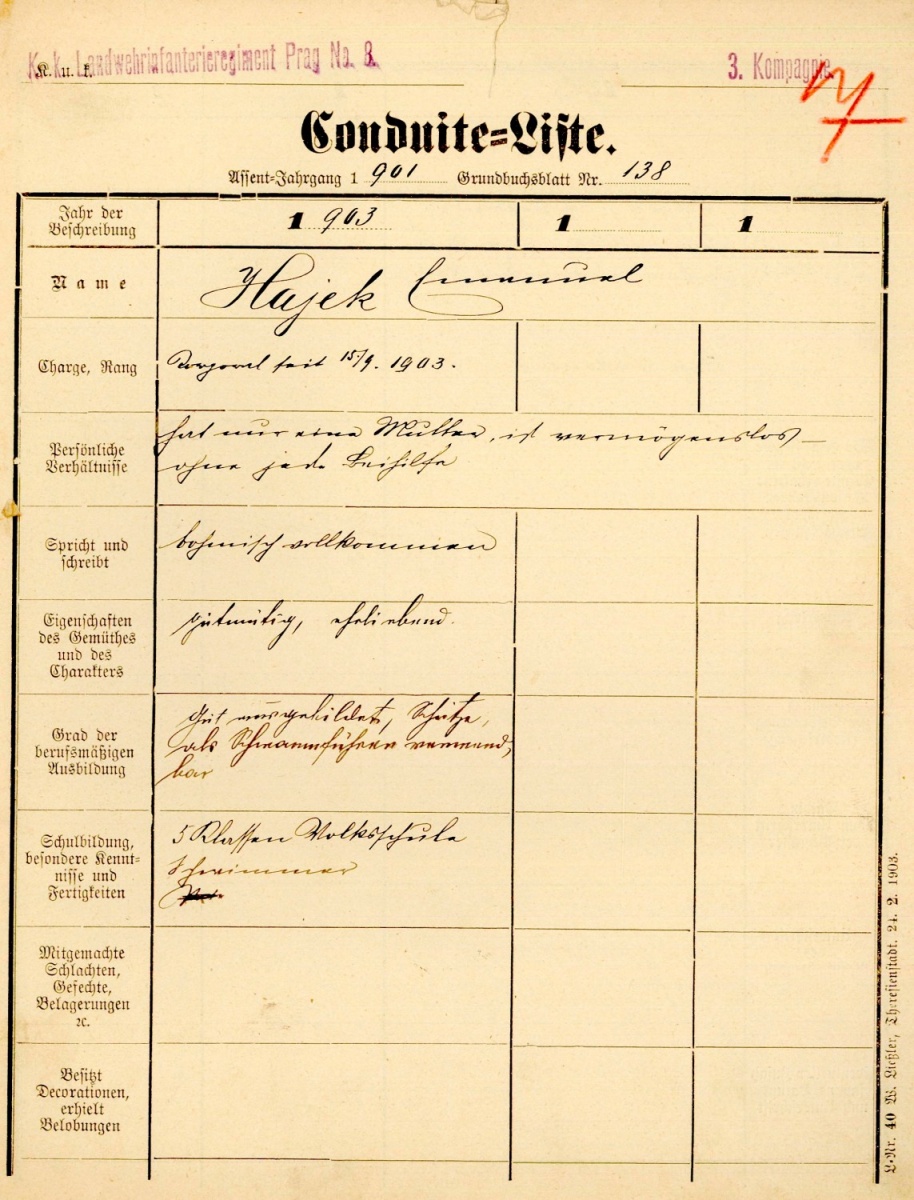 K. k. Landwehrinfanterieregiment Prag No. 8.
K. u. k.
3. Kompagnie.
Conduite=Liste.
Assent-Jahrgang 1 901 Grundbuchsblatt Nr. 138
Jahr der Beschreibung
1 903
1
1
Name
Hajek Emanuel
Charge, Rang
Korporal seit 15/9. 1903.
Persönliche
Verhältnisse
hat nur eine Mutter, ist vermögenslos –
ohne jede Beihilfe
Spricht und
schreibt
böhmisch vollkommen
Eigenschaften
des Gemüthes
und des
Charakters
gutmütig, ehrliebend.
Grad der
berufsmäßigen
Ausbildung
Gut ausgebildet, Schütze,
als Schwarmführer verwend-
bar
Schulbildung,
besondere Kennt-
nisse und
Fertigkeiten
5 Klassen Volksschule
Schwimmer
Mitgemachte
Schlachten,
Gefechte,
Belagerungen
ꝛc.
Besitzt
Decorationen,
erhielt
Belobungen
L.-Nr. 40 W. Liebler, Theresienstadt. 24. 2. 1903.